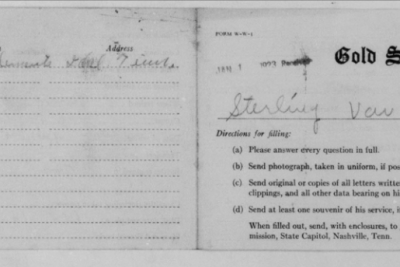 Address
Tenn.
FORM W-W-1
Gold S
JAN 1 1923
Sterling Van
Directions for filling:
(a) Please answer every question in full.
(b) Send photograph, taken in uniform, if pos
(c) Send original or copies of all letters written
clippings, and all other data bearing on hi
(d) Send at least one souvenir of his service, i
When filled out, send, with enclosures, to
mission, State Capitol, Nashville, Tenn.